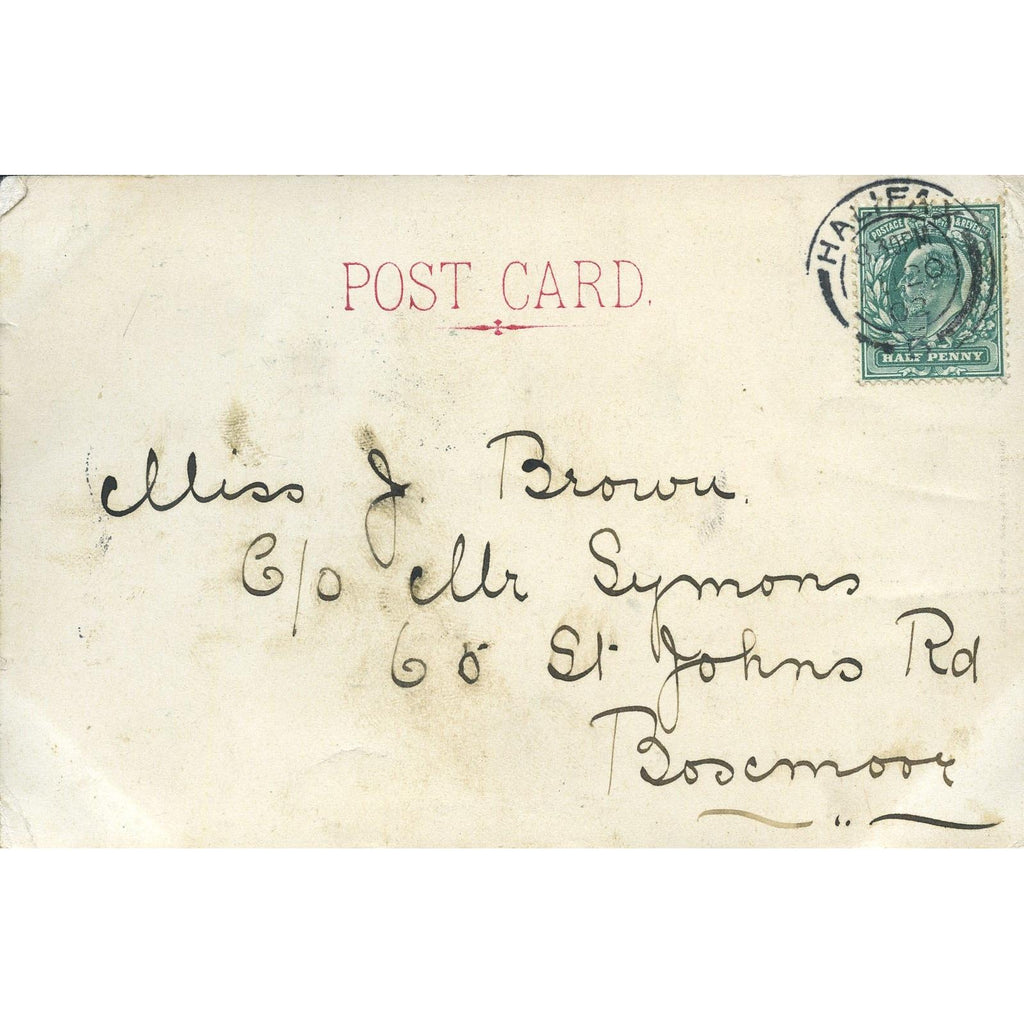 HALIFAX
POSTAGE & REVENUE
02
HALF PENNY
POST CARD.
Miss J. Brown.
C/o Mr Symons
65 St Johns Rd
Boscmoor